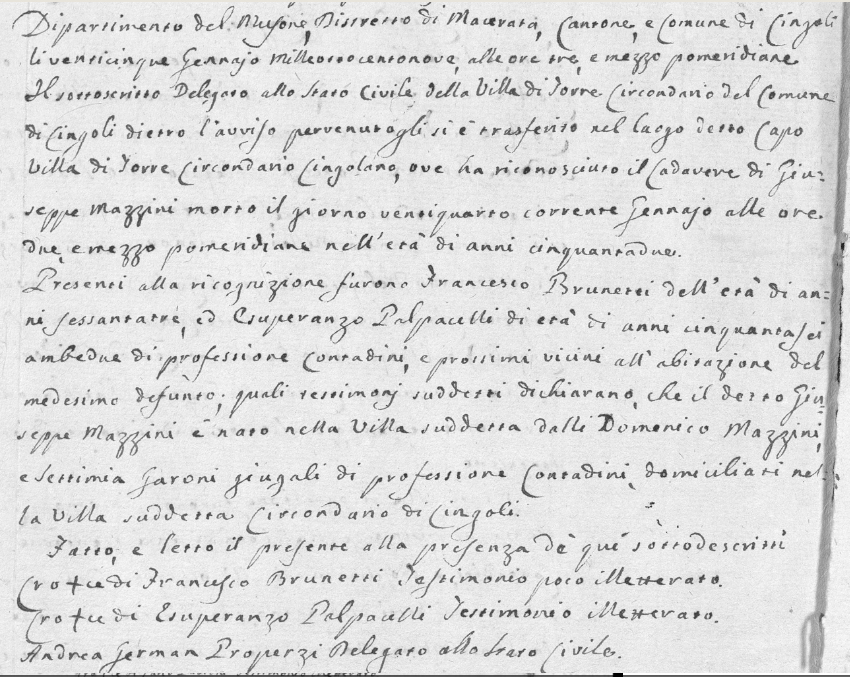 Dipartimento del Musone, Distretto di Macerata, Cantone, e Comune di Cingoli
li venticinque Gennajo Milleottocentonove, alle ore tre, e mezzo pomeridiane
Il sottoscritto Delegato allo Stato Civile della Villa di Torre Circondario del Comune
di Cingoli dietro l'avviso pervenutogli si è trasferito nel luogo detto Capo
Villa di Torre Circondario Cingolano, ove ha riconosciuto il Cadavere di Giu=
seppe Mazzini morto il giorno ventiquatto corrente Gennajo alle ore
due, e mezzo pomeridiane nell'età di anni cinquantadue.
Presenti alla ricognizione furono Francesco Brunetti dell'età di an=
ni sessantatrè, ed Esuperanzo Palpacelli di età di anni cinquantasei
ambedue di professione Contadini, e prossimi vicini all'abitazione del
medesimo defunto; quali testimonj suddetti dichiarano, che il detto Giu=
seppe Mazzini è nato nella Villa suddetta dalli Domenico Mazzini,
e Settimia Garoni giugali di professione Contadini, domiciliati nel=
la Villa suddetta Circondario di Cingoli.
Fatto, e letto il presente alla presenza dè quì sottodescritti
Cro+ce di Francesco Brunetti Testimonio poco illetterato.
Cro+ce di Esuperanzo Palpacelli Testimonio illetterato.
Andrea German Properzi Delegato allo Stato Civile.